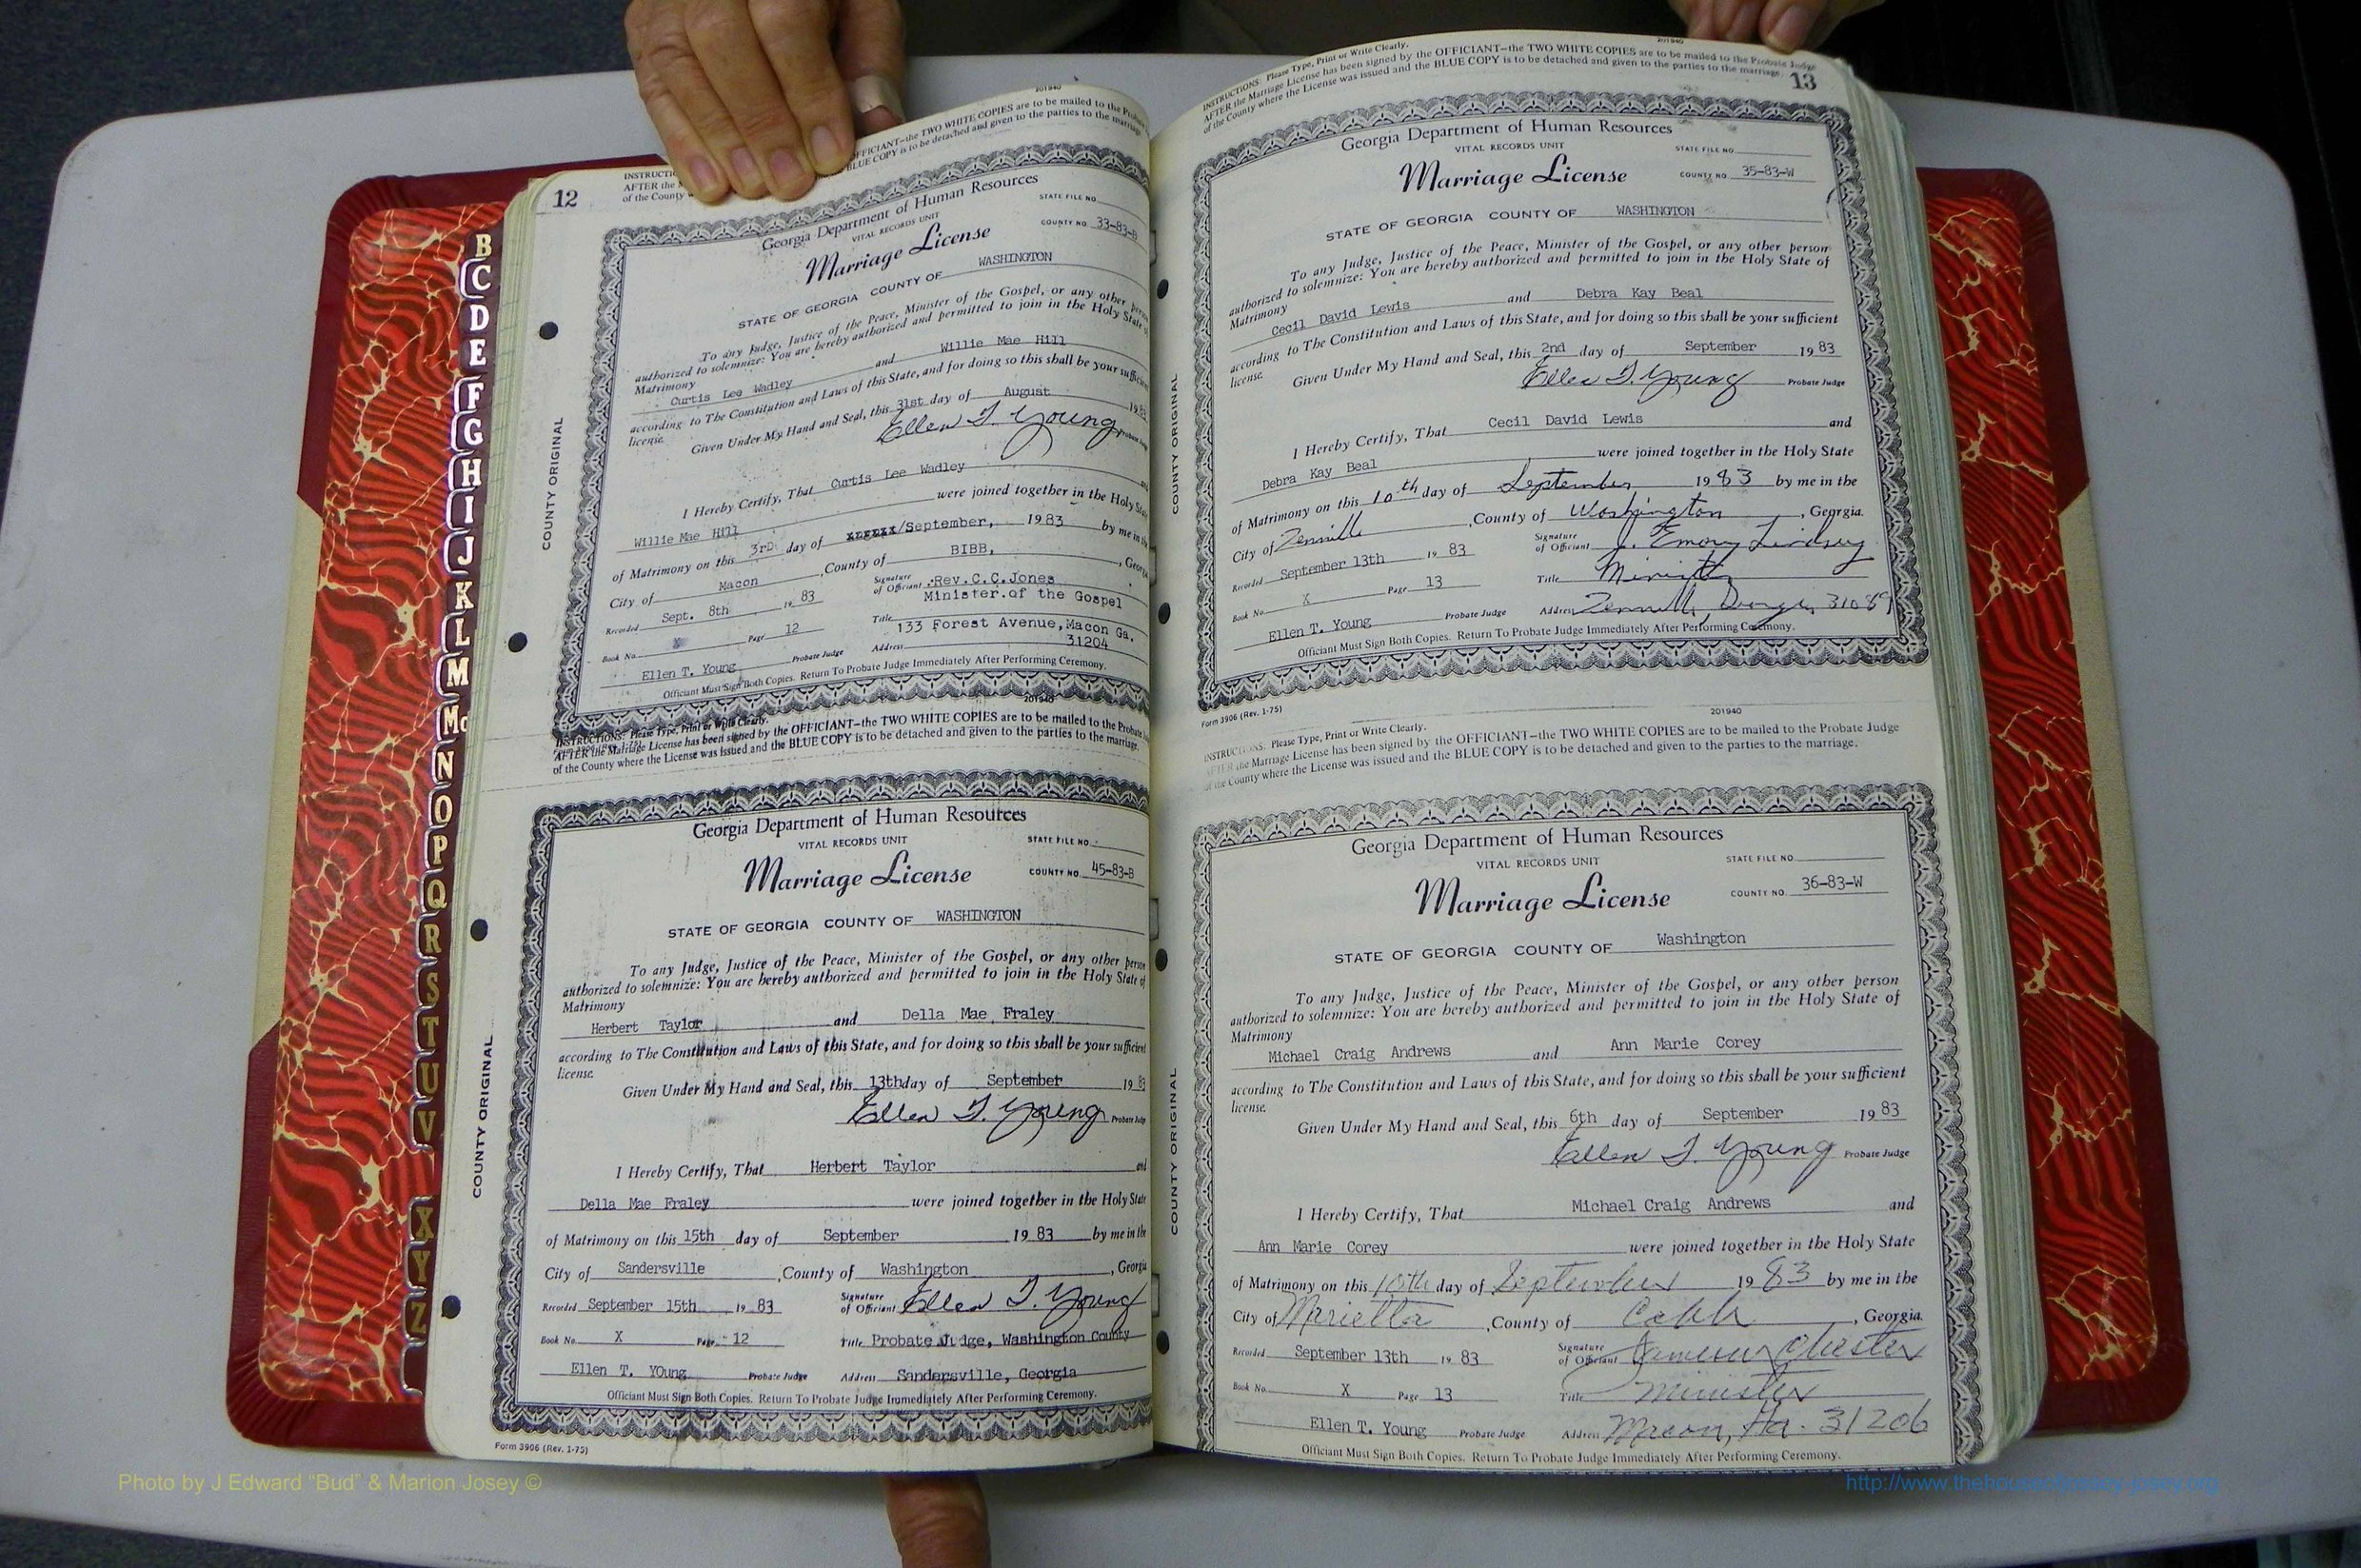 B
C
D
E
F
G
H
I
J
K
L
M
Mc
N
O
P
Q
R
S
T
U
V
X
Y
Z
12
201940
OFFICIANT—the TWO WHITE COPIES are to be mailed to the Probate
AFTER the
BLUE COPY is to be detached and given to the parties to the marriage
of the County
Georgia Department of Human Resources
VITAL RECORDS UNIT
STATE FILE NO.
Marriage License
COUNTY NO. 33-83-B
STATE OF GEORGIA COUNTY OF WASHINGTON
To any Judge, Justice of the Peace, Minister of the Gospel, or any other person
authorized to solemnize: You are hereby authorized and permitted to join in the Holy State of
Matrimony
Curtis Lee Wadley and Willie Mae Hill
according to The Constitution and Laws of this State, and for doing so this shall be your sufficient
license.
Given Under My Hand and Seal, this 31st day of August 1983
Ellen T. Young Probate Judge
I Hereby Certify, That Curtis Lee Wadley and
Willie Mae Hill were joined together in the Holy State
of Matrimony on this 3rD day of /September, 1983 by me in the
City of Macon ,County of BIBB, , Georgia
Recorded Sept. 8th , 19 83 Signature of Officiant Rev.C.C.Jones
Minister.of the Gospel
Book No. X Page 12 Title 133 Forest Avenue,Macon Ga.
Address 31204
Ellen T. Young Probate Judge
Officiant Must Sign Both Copies. Return To Probate Judge Immediately After Performing Ceremony.
201940
INSTRUCTIONS: Please Type, Print or Write Clearly.
AFTER the Marriage License has been signed by the OFFICIANT—the TWO WHITE COPIES are to be mailed to the Probate
of the County where the License was issued and the BLUE COPY is to be detached and given to the parties to the marriage.
COUNTY ORIGINAL
Georgia Department of Human Resources
VITAL RECORDS UNIT
STATE FILE NO.
Marriage License
COUNTY NO. 45-83-B
STATE OF GEORGIA COUNTY OF WASHINGTON
To any Judge, Justice of the Peace, Minister of the Gospel, or any other person
authorized to solemnize: You are hereby authorized and permitted to join in the Holy State of
Matrimony
Herbert Taylor and Della Mae Fraley
according to The Constitution and Laws of this State, and for doing so this shall be your sufficient
license.
Given Under My Hand and Seal, this 13th day of September 1983
Ellen T. Young Probate Judge
I Hereby Certify, That Herbert Taylor and
Della Mae Fraley were joined together in the Holy State
of Matrimony on this 15th day of September 19 83 by me in the
City of Sandersville ,County of Washington , Georgia
Recorded September 15th 19 83 Signature of Officiant Ellen T. Young
Book No. X Page 12 Title Probate Judge, Washington County
Ellen T. YOung Probate Judge Address Sandersville, Georgia
Officiant Must Sign Both Copies. Return To Probate Judge Immediately After Performing Ceremony.
Form 3906 (Rev. 1-75)
COUNTY ORIGINAL
201940
INSTRUCTIONS: Please Type, Print or Write Clearly.
AFTER the Marriage License has been signed by the OFFICIANT—the TWO WHITE COPIES are to be mailed to the Probate Judge
of the County where the License was issued and the BLUE COPY is to be detached and given to the parties to the marriage.
13
Georgia Department of Human Resources
VITAL RECORDS UNIT
STATE FILE NO.
Marriage License
COUNTY NO. 35-83-W
STATE OF GEORGIA COUNTY OF WASHINGTON
To any Judge, Justice of the Peace, Minister of the Gospel, or any other person
authorized to solemnize: You are hereby authorized and permitted to join in the Holy State of
Matrimony
Cecil David Lewis and Debra Kay Beal
according to The Constitution and Laws of this State, and for doing so this shall be your sufficient
license.
Given Under My Hand and Seal, this 2nd day of September 19 83
Ellen T. Young Probate Judge
I Hereby Certify, That Cecil David Lewis and
Debra Kay Beal were joined together in the Holy State
of Matrimony on this 10th day of September 19 83 by me in the
City of Tennille ,County of Washington , Georgia.
Recorded September 13th 19 83 Signature of Officiant J. Emory Lindsey
Book No. X Page 13 Title Minister
Ellen T. Young Probate Judge Address Tennille, Georgia 31089
Officiant Must Sign Both Copies. Return To Probate Judge Immediately After Performing Ceremony.
Form 3906 (Rev. 1-75)
COUNTY ORIGINAL
201940
INSTRUCTIONS: Please Type, Print or Write Clearly.
AFTER the Marriage License has been signed by the OFFICIANT—the TWO WHITE COPIES are to be mailed to the Probate Judge
of the County where the License was issued and the BLUE COPY is to be detached and given to the parties to the marriage.
Georgia Department of Human Resources
VITAL RECORDS UNIT
STATE FILE NO
Marriage License
COUNTY NO. 36-83-W
STATE OF GEORGIA COUNTY OF Washington
To any Judge, Justice of the Peace, Minister of the Gospel, or any other person
authorized to solemnize: You are hereby authorized and permitted to join in the Holy State of
Matrimony
Michael Craig Andrews and Ann Marie Corey
according to The Constitution and Laws of this State, and for doing so this shall be your sufficient
license.
Given Under My Hand and Seal, this 6th day of September 19 83
Ellen T. Young Probate Judge
I Hereby Certify, That Michael Craig Andrews and
Ann Marie Corey were joined together in the Holy State
of Matrimony on this 10th day of September 19 83 by me in the
City of Marietta ,County of Cobb , Georgia.
Recorded September 13th 19 83 Signature of Officiant
Book No. X Page 13 Title Minister
Ellen T. Young Probate Judge Address Macon, Ga. 31206
Officiant Must Sign Both Copies. Return To Probate Judge Immediately After Performing Ceremony.
COUNTY ORIGINAL
Photo by J Edward "Bud" & Marion Josey ©
http://www.thehouseofjossey-josey.org